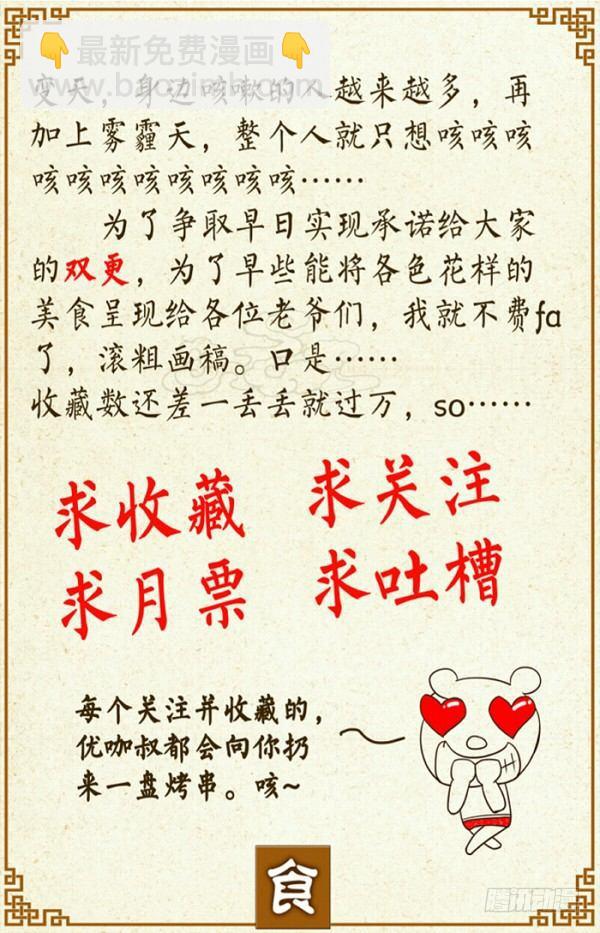 👇最新免费漫画👇
www.baozimh.com
变天，身边咳嗽的人越来越多，再
加上雾霾天，整个人就只想咳咳咳
咳咳咳咳咳咳咳咳……
为了争取早日实现承诺给大家
的双更，为了早些能将各色花样的
美食呈现给各位老爷们，我就不费fa
了，滚粗画稿。口是……
收藏数还差一丢丢就过万，so……
求收藏 求关注
求月票 求吐槽
每个关注并收藏的，
优咖叔都会向你扔
来一盘烤串。咳~
食
腾讯动漫